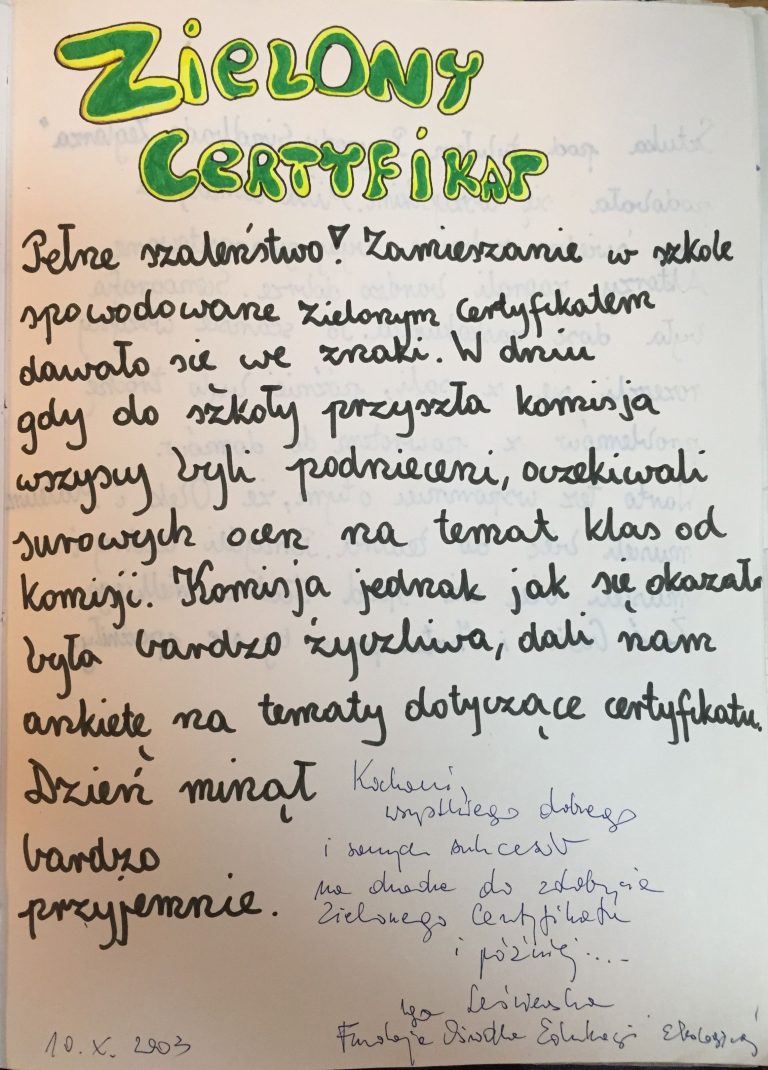 ZIELONY
CERTYFIKAT
Pełne szaleństwo! Zamieszanie w szkole
spowodowane zielonym certyfikatem
dawało się we znaki. W dniu
gdy do szkoły przyszła komisja
wszyscy byli podnieceni, oczekiwali
surowych ocen na temat klas od
komisji. Komisja jednak jak się okazało
była bardzo życzliwa, dali nam
ankietę na tematy dotyczące certyfikatu.
Dzień minął
bardzo
przyjemnie.
Kochani,
wszystkiego dobrego
i samych sukcesów
na drodze do zdobycia
Zielonego Certyfikatu
i później....
Iga
Fundacja Ośrodka Edukacji Ekologicznej
10. X. 2003